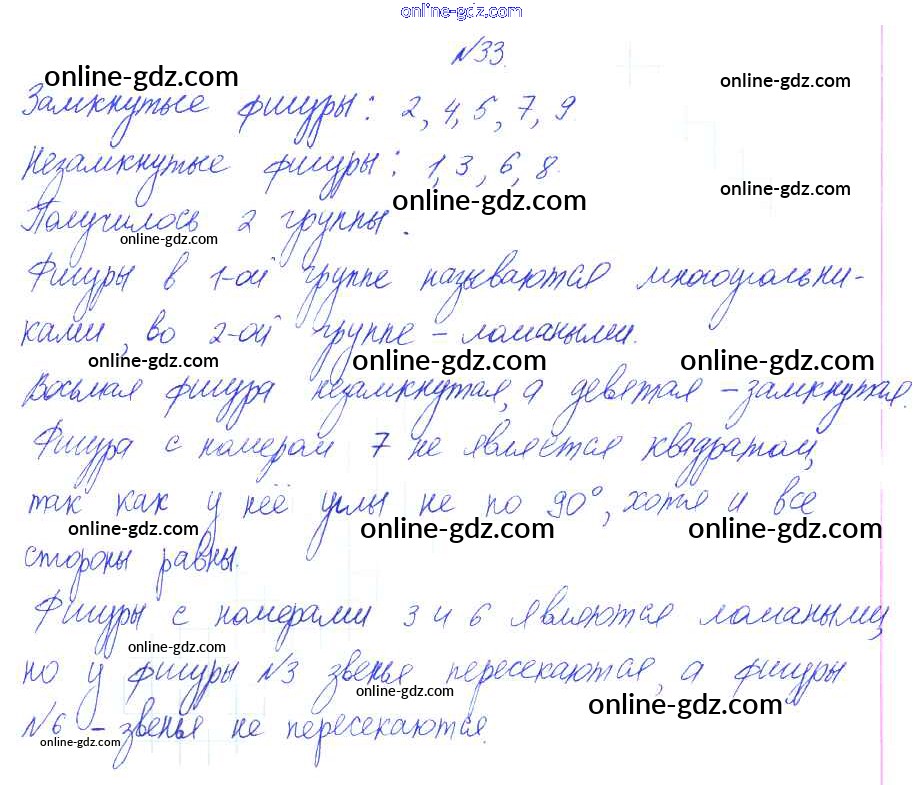 online-gdz.com
№33.
online-gdz.com online-gdz.com
Замкнутые фигуры: 2, 4, 5, 7, 9.
Незамкнутые фигуры: 1, 3, 6, 8.
online-gdz.com online-gdz.com
Получилось 2 группы.
online-gdz.com
Фигуры в 1-ой группе называются многоугольни-
ками, во 2-ой группе – ломаными.
online-gdz.com online-gdz.com online-gdz.com
Восьмая фигура незамкнутая, а девятая – замкнутая.
Фигура с номером 7 не является квадратом,
так как у неё углы не по 90°, хотя и все
online-gdz.com online-gdz.com online-gdz.com
стороны равны.
Фигуры с номерами 3 и 6 являются ломаными,
online-gdz.com
но у фигуры №3 звенья пересекаются, а фигуры
online-gdz.com online-gdz.com
№6 – звенья не пересекаются.
online-gdz.com